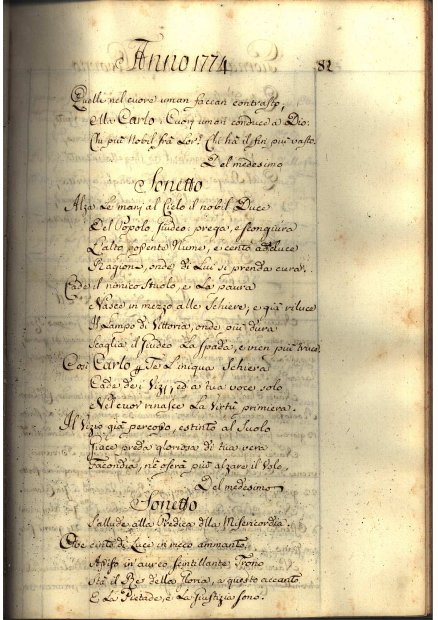 Anno 1774
82
Quelli nel cuore uman faccan contrasto;
Ma Carlo i Cuori umani conduce a Dio.
Chi più Nobil frà Lor? Chi hà il fin più vasto.
Del medesimo
Sonetto
Alza Le mani al Cielo il nobil Duce
Del Popolo Giudeo: prega, e scongiura
L'alto possente Nume, e cento adduce
Ragioni, onde di Lui si prenda cura.
Cade il nemico Stuolo, e La paura
Nasce in mezzo alle Schiere, e già riluce
Il Lampo di Vittoria, onde più dura
Scaglia il Giudeo La Spada, e vien più truce.
Così Carlo p Te L'iniqua Schiera
Cade de' Vizj, ed a tua voce solo
Nel cuor rinasce La Virtù primiera.
Il Vizio già percosso, estinto al Suolo
Giace preda gloriosa di tua vera
Facondia, nè oserà più alzare il Volo.
Del medesimo
Sonetto
S'allude alla Predica dlla Misericordia.
cinto di Luce in ricco ammanto,
Assiso in aureo scintillante Trono
Stà il Re della Gloria, a questo accanto
E La Pietade, e La Giustizia sono.